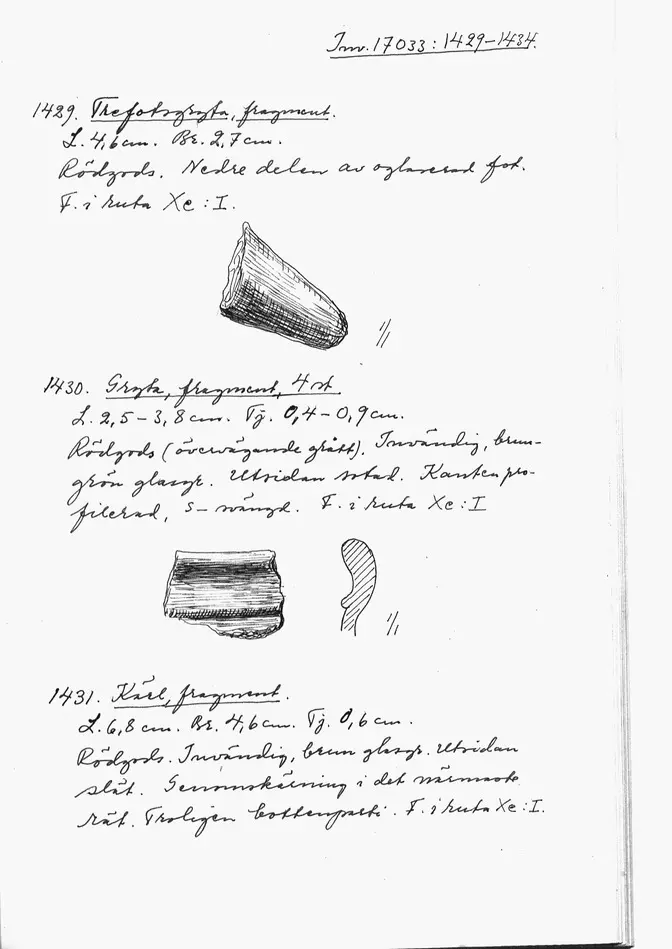 Inv. 17033:1429-1434.
1429. Trefotsgryta, fragment.
L. 4,6 cm. Br. 2,7 cm.
Rödgods. Nedre delen av oglaserad fot.
F. i ruta Xc : I.
1/1
1430. Gryta, fragment, 4 st.
L. 2,5 - 3,8 cm. Tj. 0,4 - 0,9 cm.
Rödgods (övervägande grått). Invändig, brun-
grön glasyr. Utsidan sotad. Kanten pro-
filerad, s-svängd. F. i ruta Xc : I
1/1
1431. Kärl, fragment.
L. 6,8 cm. Br. 4,6 cm. Tj. 0,6 cm.
Rödgods. Invändig, brun glasyr. Utsidan
slät. Genomskärning i det närmaste
rät. Troligen bottenparti. F. i ruta Xc : I.